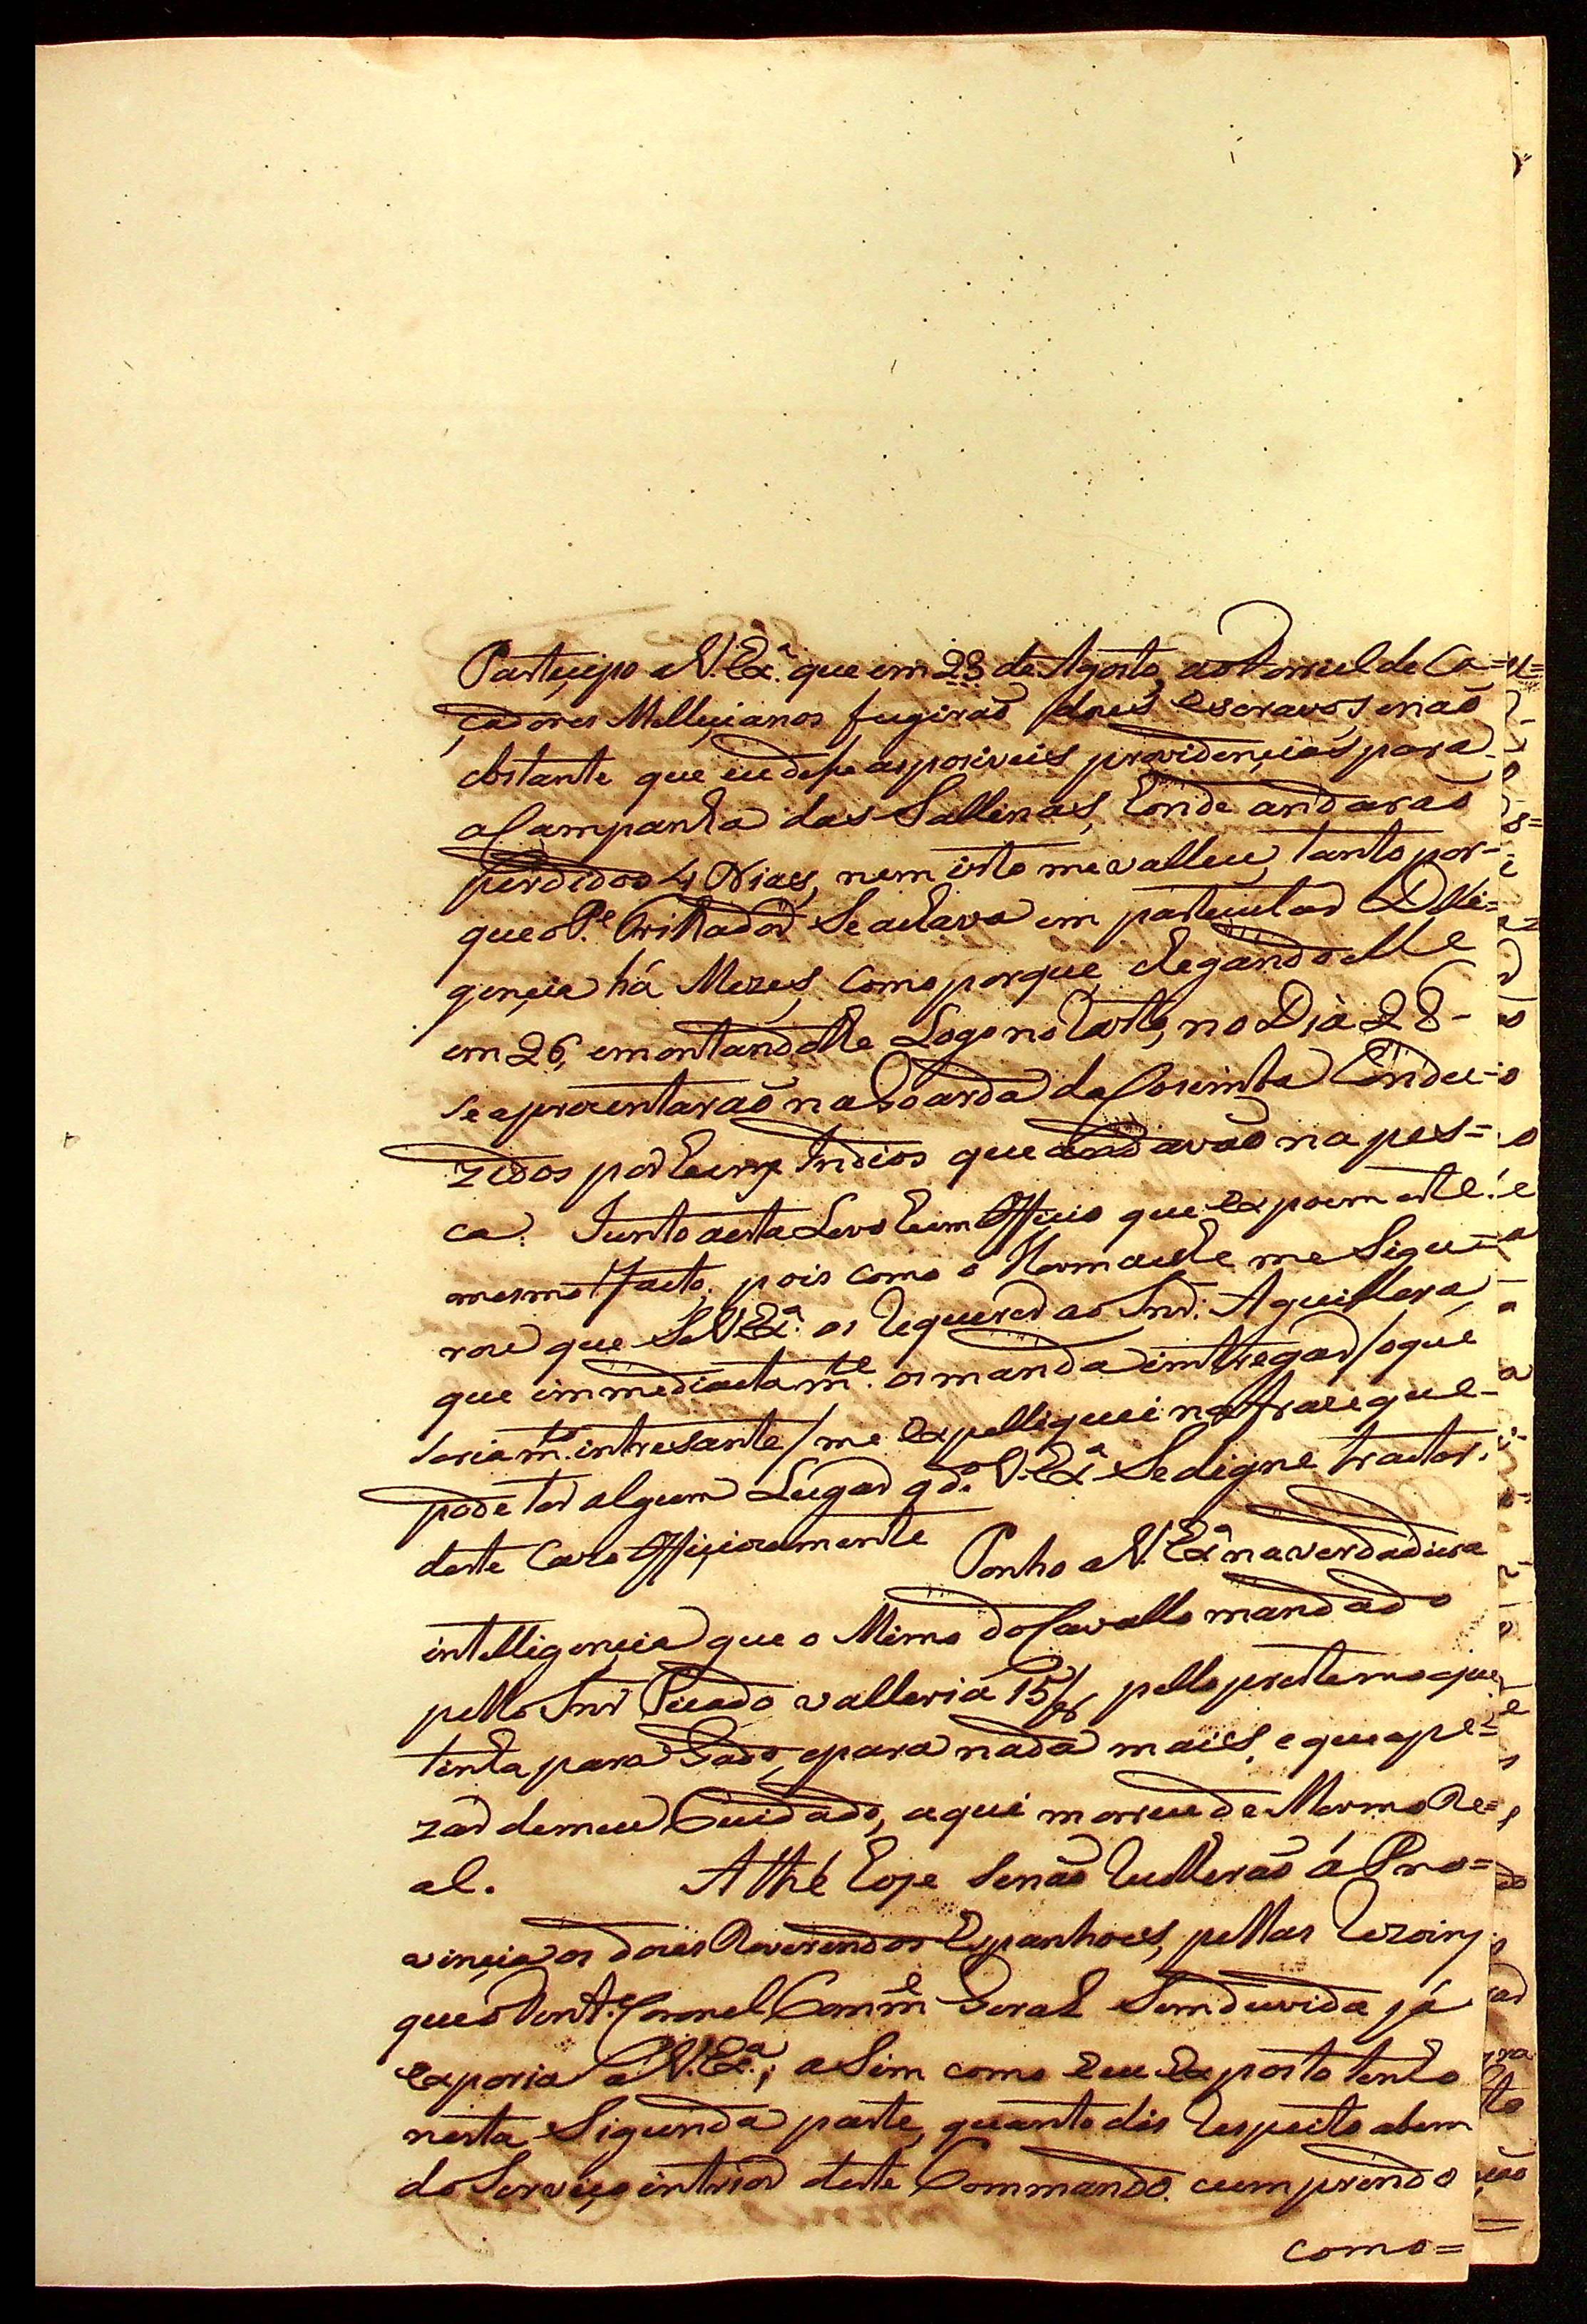 Parteçipo a V. Exª. que em 23 de Agosto, ao Coronel de Ca=
çadores Milliçianos fugirão dois escravos, e não
obstante que eu desse as posiveis providençias para
a Campanha das Sallinas, honde andarão
perdidos 4 Dias, nem isto me valleu, tanto por-
que o Pe. Trilhador Se achava em particular Dilli=
gençia há Mezes, como porque, chegando elle
em 26, e montando lhe Logo no Rasto, no Dia 28-
se aprezentarão na Goarda da Corimba Condu-
zidos por huns Indios que andavão na pes=
ca. Junto a esta Levo hum Offiçio que expoem este
mesmo Facto, pois como o Hermache me Sigu-
rou que Se V. Exª. os Requerer ao Snr. Aguillera,
que immediactamte. os manda intregar / o que
Seria mto. intresante / me expelliquei na frazi que
pode ter algum Lugar qdo. V. Exª. Se digne tractar
deste Cazo Offiçiozamente Ponho a V. Exª na verdadeira
intelligençia que o Mimo do Cavallo mandado
pello Snr Picado valleria 15 pello prestemo que
tinha para Gado, e para nada mais, e que ape=
zar de meu Cuidado, aqui morreu de Mormo Re=
al. Athé hoje Senão Recolherão á Pro=
vinçia os dois Reverendos Espanhoes, pellas Rezoins
que o Tente. Coronel Comme. Geral Sem duvida já
exporia a V. Exª.; asim como eu exposto tenho
nesta Sigunda parte, quanto dis Respeito a bem
do Serviço intrior deste Commando. cumprindo
como=